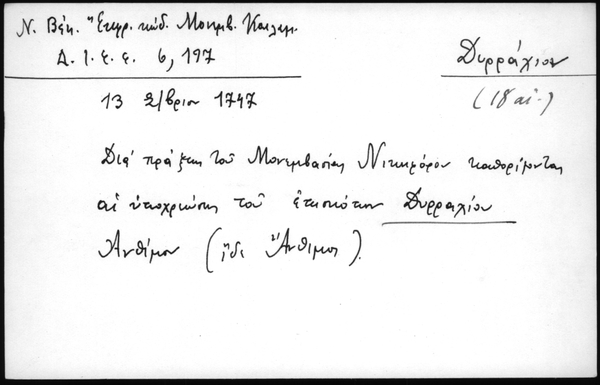 Ν. Βέη. "Εκφρ. κώδ. Μονεμβ. Καλαμ.
Δ. Ι. Ε. Ε. 6, 197
Δυρράχιον
(18 αἰ.)
13 8/βρίου 1747
Διὰ πράξεως τοῦ Μονεμβασίας Νικηφόρου καθορίζονται
αἱ ὑποχρεώσεις τοῦ ἐπισκόπου Δυρραχίου
Ἀνθίμου (ἴδε Ἄνθιμος).